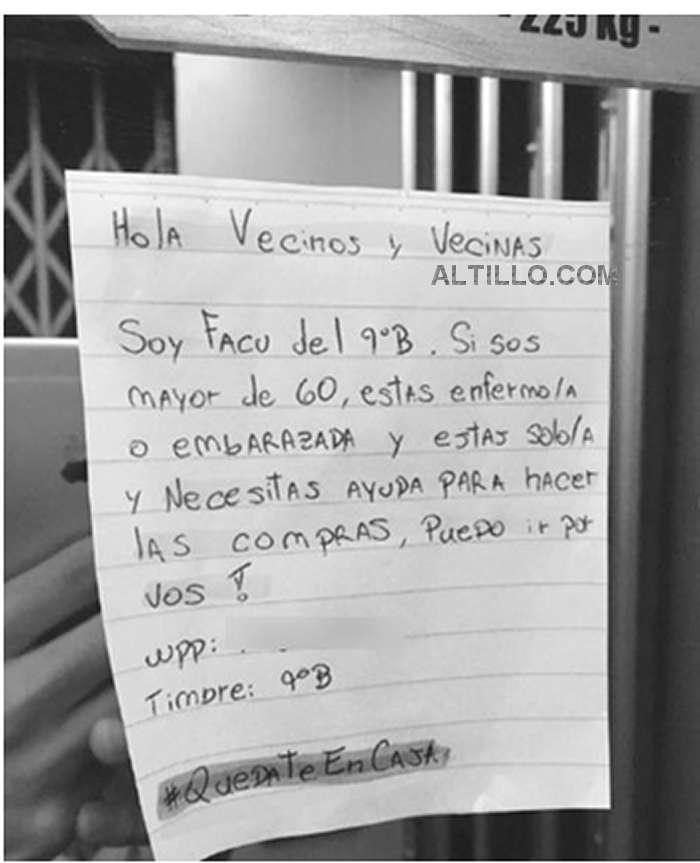 - 225 Kg -
Hola Vecinos y Vecinas
ALTILLO.COM
Soy Facu del 9°B. Si sos
mayor de 60, estas enfermo/a
o embarazada y estas solo/a
y necesitas ayuda para hacer
las compras, puedo ir por
vos !
wpp:
Timbre: 9°B
#QuedateEnCasa